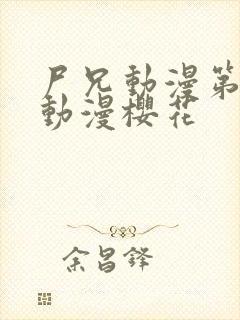 尸兄動漫第
動漫櫻花
余昌鋒